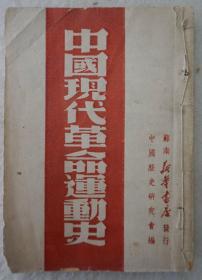 中國現代革命運動史
蘇南新華書店發行
中國歷史研究會編